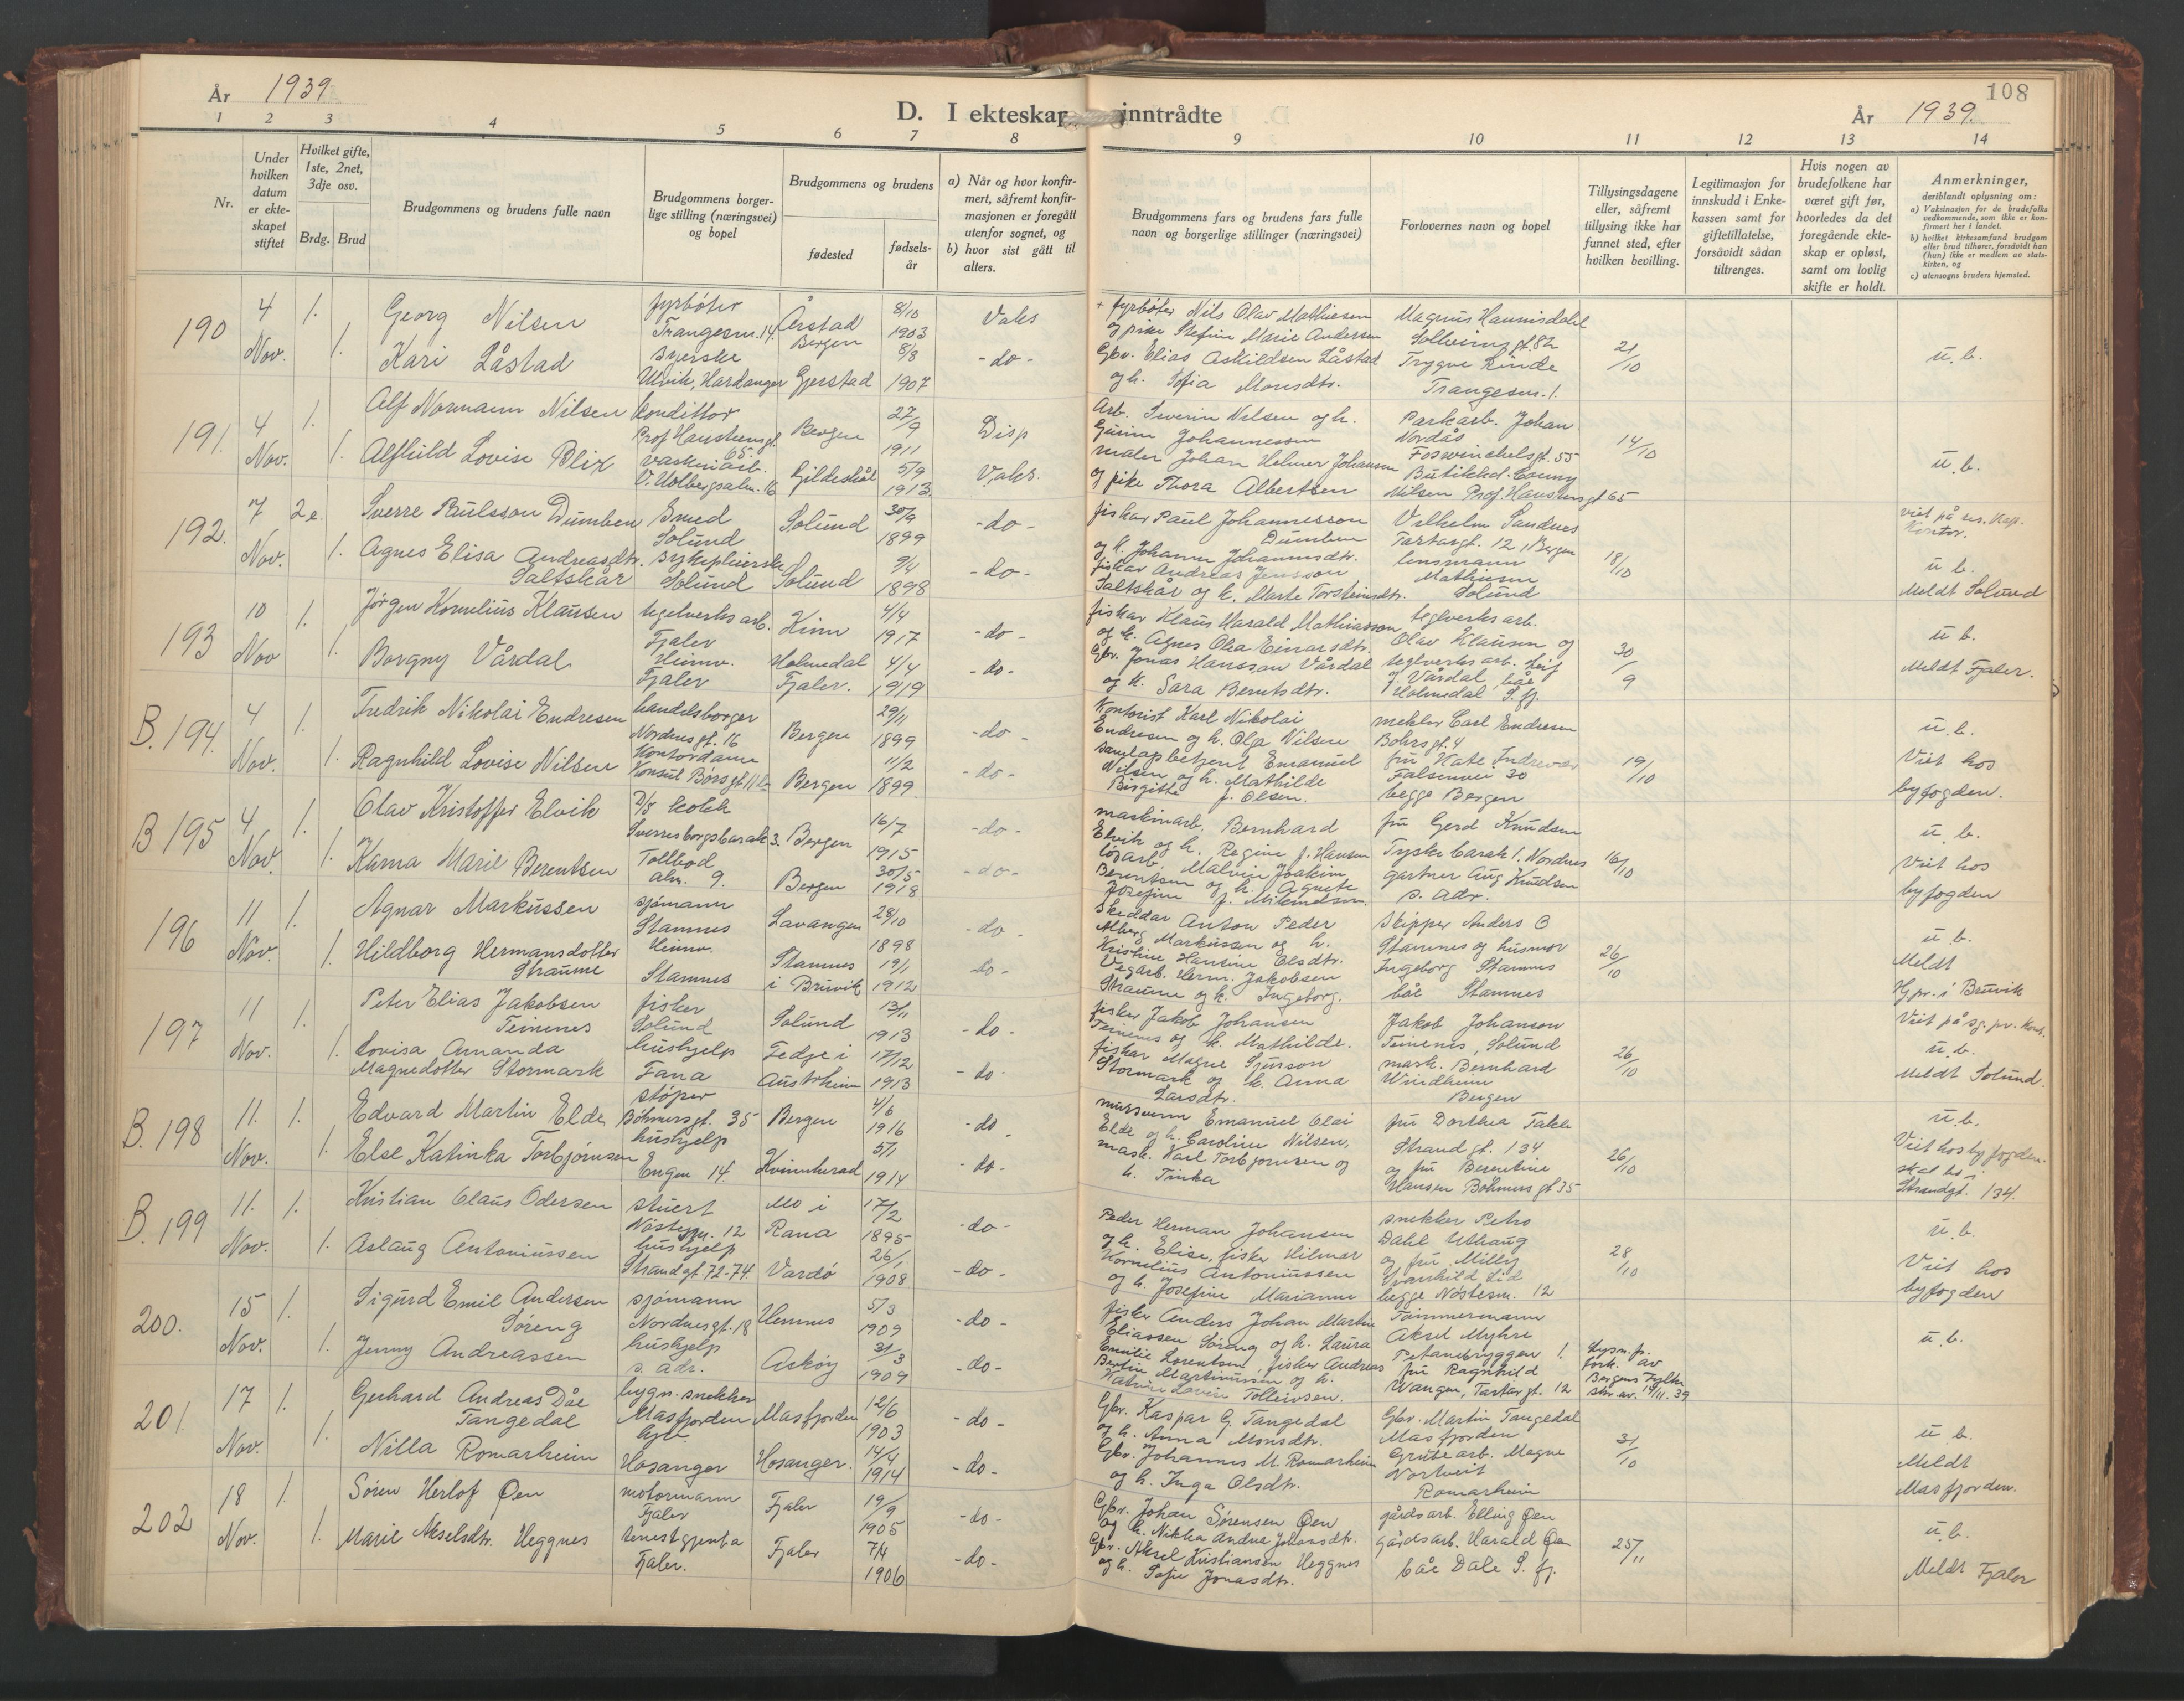 108
År 1939
D. I ekteskap inntrådte
År 1939.
1 2 3 4 5 6 7 8 9 10 11 12 13 14
Nr.
Under hvilken datum er ekteskapet stiftet
Hvilket gifte, 1ste, 2net, 3dje osv.
Brdg. Brud
Brudgommens og brudens fulle navn
Brudgommens borgerlige stilling (næringsvei) og bopel
Brudgommens og brudens
fødested
fødselsår
a) Når og hvor konfirmert, såfremt konfirmasjonen er foregått utenfor sognet, og
b) hvor sist gått til alters.
Brudgommens fars og brudens fars fulle navn og borgerlige stillinger (næringsvei)
Forlovernes navn og bopel
Tillysingsdagene eller, såfremt tillysing ikke har funnet sted, efter hvilken bevilling.
Legitimasjon for innskudd i Enkekassen samt for giftetillatelse, forsåvidt sådan tiltrenges.
Hvis nogen av brudefolkene har været gift før, hvorledes da det foregående ekteskap er opløst, samt om lovlig skifte er holdt.
Anmerkninger, deriblandt oplysning om:
a) Vaksinasjon for de brudefolks vedkommende, som ikke er konfirmert her i landet.
b) hvilket kirkesamfund brudgom eller brud tilhører, forsåvidt han (hun) ikke er medlem av statskirken, og
c) utensogns bruders hjemsted.
190 4 Nov. 1. Georg Nilsen fyrbøter Trangesm. 14. Årstad Bergen 8/10 1903 Vaks + fyrbøter Nils Olav Mathiesen og pike Stefine Marie Andersen Magnus Haunisdahl Solheimsgt. 82
1. Kari Låstad syerske Ulvik, Hardanger Gjerstad 8/8 1907 -do- Gbr. Elias Askildsen Låstad og h. Sofia Monsdtr. Trygve Rinde Trangesm. 1. 21/10 u. b.
191. 4 Nov. 1. Alf Normann Nilsen konditor Prof Hansteensgt. 65. Bergen 27/9 1911 Disp Arb. Severin Nilsen og h. Gurine Johannessen Parkarb. Johan Nordås Foswinckelsgt. 55 14/10
1. Alfhild Lovise Blix vaskeriarb. V. Holbergsalm. 16 Gildeskål 5/9 1913. Vaks. maler Johan Helmer Johansen og pike Thora Albertsen Butikked. Conny Nilsen Prof. Hansteensgt 65 u. b.
192. 7 Nov. 2e. Sverre Paulsson Dumben Smed Solund Solund 30/9 1899 -do- fiskar Paul Johannesson Dumben og k. Johanna Johannesdtr. Vilhelm Sandnes Tartargt. 12, Bergen 18/10 viet på res. kap. kontor.
1. Agnes Elisa Andreasdtr. Saltskår sykepleierske Solund Solund 9/4 1898 -do- fiskar Andreas Jensson Saltskår og k. Marte Torsteinsdtr. lensmann Mathisen Solund u. b. Meldt Solund
193 10 Nov 1. Jørgen Kornelius Klausen teglverksarb. Fjaler Kinn 4/4 1917 -do- fiskar Klaus Harald Mathiasson og k. Agnes Olea Einarsdtr. teglverksarb. Olav Klausen og u. b.
1. Borgny Vårdal Heimv. Fjaler Holmedal Fjaler. 4/4 1919 -do- Gbr. Jonas Hansson Vårdal og k. Sara Berntsdtr. teglverksarb. Leif J. Vårdal, båe Holmedal S. fj. 30/9 Meldt Fjaler.
B. 194. 4 Nov. 1. Fredrik Nikolai Endresen handelsborger Nordnesgt. 16 Bergen 29/11 1899 -do- Kontorist Karl Nikolai Endresen og h. Olga Nilsen mekler Carl Endresen Bohrsgt. 4 u. b.
1. Ragnhild Lovise Nilsen Kontordame Konsul Børsgt 11 Bergen 11/2 1899 -do- Emanuel Nilsen og h. Mathilde Birgitte f. Olsen. fru Kate Falsensvei 30 begge Bergen 19/10 Viet hos byfogden.
B 195 4 Nov. 1. Olav Kristoffer Elvik D/S kokk Sverresborgsbarak 3. Bergen 16/7 1915 -do- maskinarb. Bernhard Elvik og h. Regine f. Hansen fru Gerd Knudsen Tyskebarak 1. Nordnes u. b.
1. Karna Marie Berentsen Tollbod alm. 9. Bergen 30/5 1918 -do- løsarb. Malvin Joakim Berentsen og h. Agnete Josefine f. Mikkelsen. gartner Aug Knudsen s. adr. 16/10 Viet hos byfogden
196 11 Nov. 1. Agnar Markussen sjømann Stamnes Lavangen 28/10 1898 -do- Skeddar Anton Peder Alberg Markussen og h. Kristine Hansine Olsdtr. Skipper Anders B Stamnes og husmor u. b.
1. Hildborg Hermansdotter Straume Heimv. Stamnes Stamnes i Bruvik 19/1 1912 -do- Vegarb. Herm. Jakobsen Straume og k. Ingeborg. Ingeborg Stamnes båe Stamnes 26/10 Meldt Hpr. i Bruvik
197 11 Nov. 1. Peter Elias Jakobsen Teinenes fisker Solund Solund 13/11 1913 -do- fisker Jakob Johansen Teinenes og k. Mathilde. Jakob Johanson Teinenes, Solund Viet på sg. pr. kont.
1. Lovisa Amanda Magnedotter Stormark hushjelp Fana Fedje i Austrheim 17/12 1913 -do- fiskar Magne Sjurson Stormark og k. Anna Larsdtr. mask. Bernhard Windheim Bergen 26/10 u. b. Meldt Solund.
B. 198 11. Nov. 1. Edvard Martin Elde støper Bøhmersgt. 35 Bergen 4/6 1916 -do- murerm Emanuel Olai Elde og h. Caroline Nilsen, fru Dorthea Takle Strandgt. 134 u. b.
1. Else Katinka Torbjørnsen hushjelp Engen 14. Kvinnherad 5/1 1914 -do- mask. Karl Torbjørnsen og h. Tinka og fru Berentine Hansen Bøhmersgt 35 26/10 Viet hos byfogden. skal bo Strandgt. 134.
B. 199 11. Nov. 1. Kristian Claus Odersen stuert Nøstegn. 12 Mo i Rana 17/2 1895 -do- Peder Herman Johansen og h. Elise, snekker Petro Dahl Uthaug u. b.
1. Aslaug Antoniussen hushjelp Strandgt. 72-74 Vardø 26/1 1908 -do- fisker Hilmar Kornelius Antoniussen og h. Josefine Marianne og fru Milly Svanhild Lid begge Nøstegn. 12 28/10 Viet hos byfogden
200. 15 Nov. 1. Sigurd Emil Andersen Søreng sjømann Nordnesgt. 18 Hemnes 5/3 1909 -do- fisker Anders Johan Martin Eliassen Sørang og h. Laura Emilie Lorentsen, Tømmermann Aksel Myhre Petanebryggen 1. u. b.
1. Jenny Andreassen hushjelp s. adr. Askøy 31/3 1909 -do- fisker Andreas Bertin Martinussen og h. Katrine Lovise Tollevsen. fru Ragnhild Wangen, Tartargt. 12 Lysn. fr. fork. av Bergens Fylke
201. 17 Nov. 1. Gerhard Andreas Dåe Tangedal bygn. snekker Masfjorden Masfjorden 12/6 1903 -do- Gbr. Kaspar G. Tangedal og h. Anna Monsdtr. Gbr. Martin Tangedal Masfjorden u. b.
1. Nilla Romarheim Hosanger Hosanger. 14/4 1914 -do- Gbr. Johannes M. Romarheim og h. Inga Olsdtr. Grubearb. Magne Nortveit Romarheim 31/10 Meldt Masfjorden.
202 18 Nov. 1. Søren Herlof Øen motormann Fjaler Fjaler 19/9 1905 -do- Gbr. Johan Sørensen Øen og h. Nikka Andrea Johansdtr. gårdsarb. Elling Øen u. b.
1. Marie Akselsdtr. Heggnes tenestgjenta Fjaler. Fjaler 7/4 1906 -do- Gbr. Aksel Kristiansen Heggnes og h. Sofie Jonasdtr. gårdsarb. Harald Øen båe Dale S. fj. 25/11 Meldt Fjaler